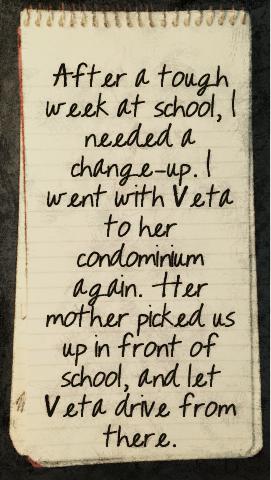 After a tough
week at school, I
needed a
change-up. I
went with Veta
to her
condominium
again. Her
mother picked us
up in front of
school, and let
Veta drive from
there.